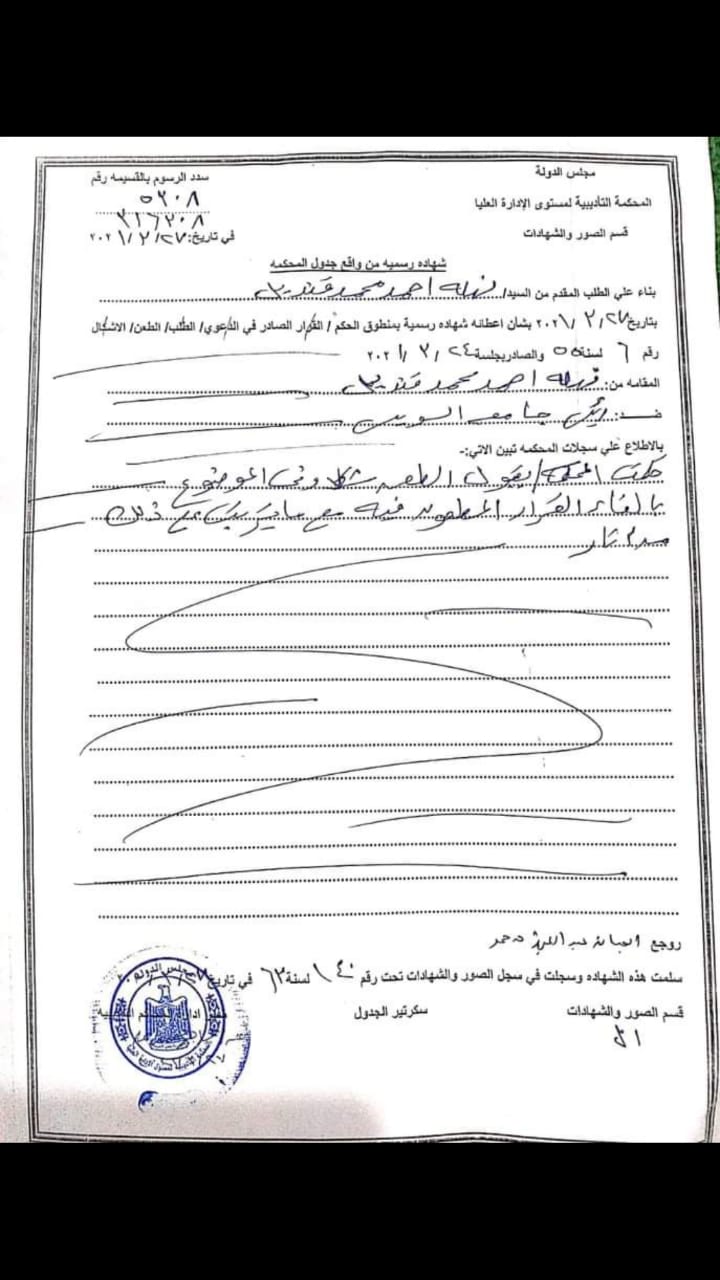 مجلس الدولة
سدد الرسوم بالقسيمه رقم
٥٢٠٨
المحكمة التأديبية لمستوى الإدارة العليا
٣١٦٢٠٨
قسم الصور والشهادات
في تاريخ: ٢٠٢١/٣/٢٧
شهاده رسميه من واقع جدول المحكمه
بناء علي الطلب المقدم من السيد/ نهله احمد محمد قنديل
بتاريخ ٢٠٢١/٣/٢٧ بشان اعطائه شهاده رسمية بمنطوق الحكم / القرار الصادر في الدعوي/ الطلب/ الطعن/ الاشكال
رقم ٦ لسنة ٥٥ والصادر بجلسة ٢٠٢١/٣/٢٤
المقامه من: نهله احمد محمد قنديل
ضد: رئيس جامعه السويس
بالاطلاع علي سجلات المحكمه تبين الاتي:-
حكمت المحكمة / بقبول الطعن شكلا وفى الموضوع
بالغاء القرار المطعون فيه مع ما يترتب على ذلك
من اثار
روجع
سلمت هذه الشهاده وسجلت في سجل الصور والشهادات تحت رقم ١٤٠ لسنة ٦٣ في تاريخ
قسم الصور والشهادات
سكرتير الجدول
مجلس الدولة